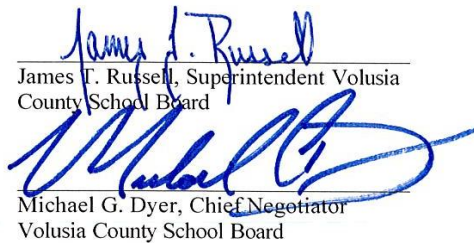 James T. Russell
James T. Russell, Superintendent Volusia
County School Board
Michael G. Dyer, Chief Negotiator
Volusia County School Board